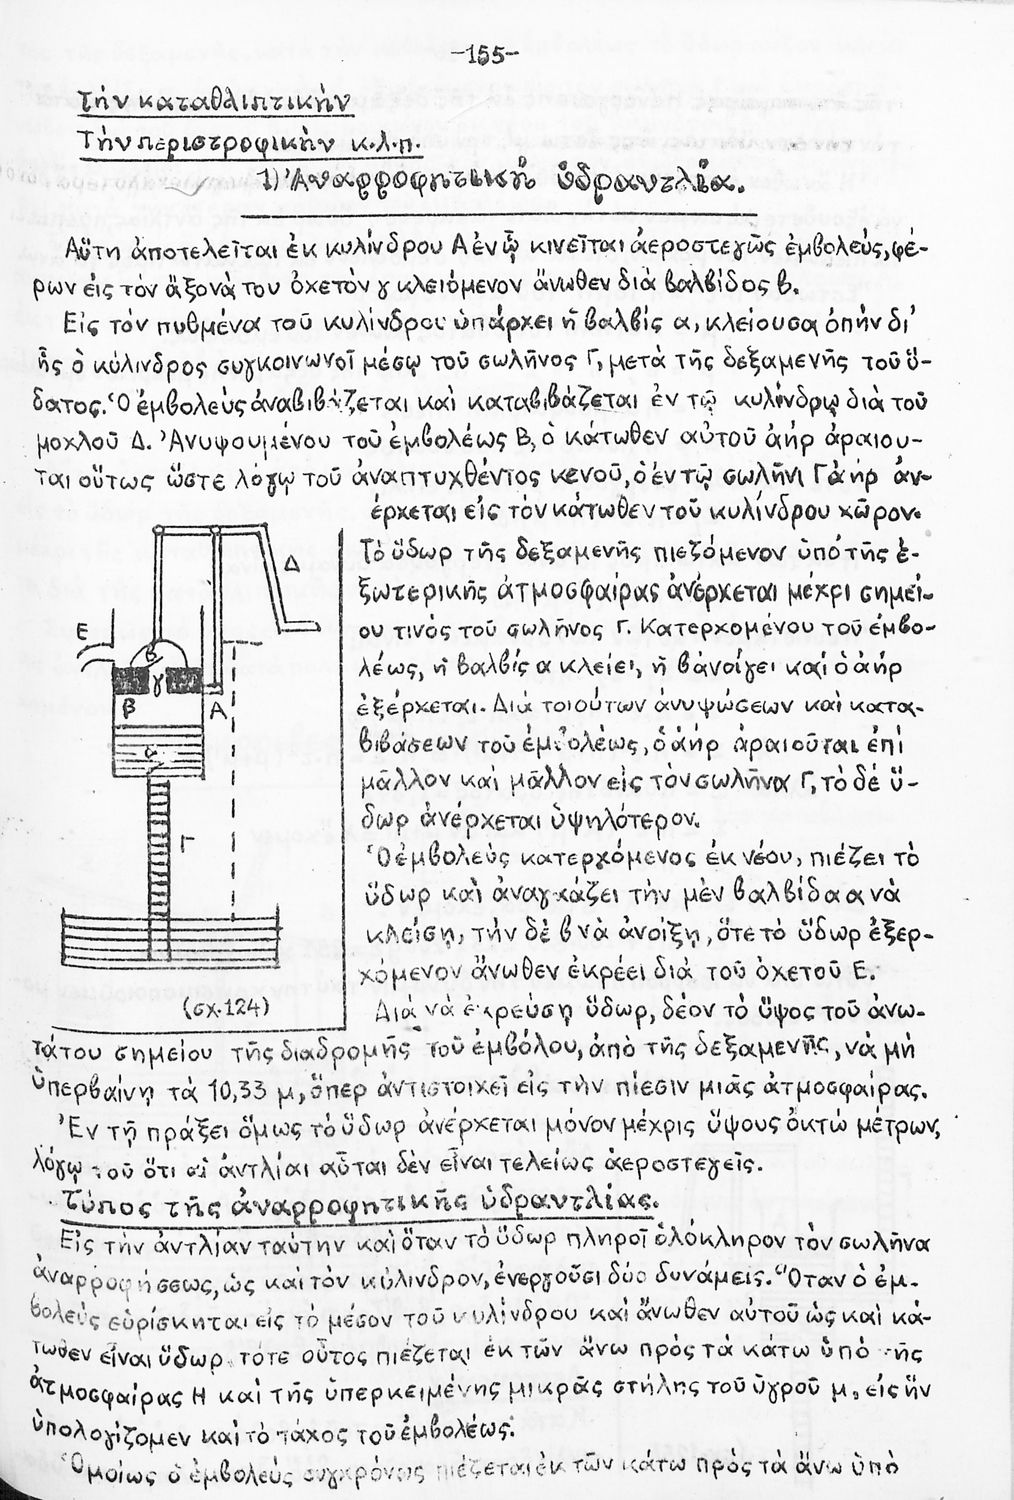 -155-
Τήν καταθλιπτικήν
Τήν περιστροφικήν κ.λ.π.
1) Ἀναρροφητική ὑδραντλία.
Αὕτη ἀποτελεῖται ἐκ κυλίνδρου Α ἐν ᾧ κινεῖται ἀεροστεγῶς ἐμβολεύς, φέ-
ρων εἰς τόν ἄξονά του ὀχετόν γ κλειόμενον ἄνωθεν διά βαλβίδος β.
Εἰς τόν πυθμένα τοῦ κυλίνδρου ὑπάρχει ἡ βαλβίς α, κλείουσα ὀπήν δι'
ἧς ὁ κύλινδρος συγκοινωνοῖ μέσῳ τοῦ σωλῆνος Γ, μετά τῆς δεξαμενῆς τοῦ ὕ-
δατος. Ὁ ἐμβολεύς ἀναβιβάζεται καί καταβιβάζεται ἐν τῷ κυλίνδρῳ διά τοῦ
μοχλοῦ Δ. Ἀνυψουμένου τοῦ ἐμβολέως Β, ὁ κάτωθεν αὐτοῦ ἀήρ ἀραιου-
ται οὕτως ὥστε λόγῳ τοῦ ἀναπτυχθέντος κενοῦ, ὁ ἐν τῷ σωλῆνι Γ ἀήρ ἀν-
έρχεται εἰς τόν κάτωθεν τοῦ κυλίνδρου χῶρον.
Τό ὕδωρ τῆς δεξαμενῆς πιεζόμενον ὑπό τῆς ἐ-
ξωτερικῆς ἀτμοσφαίρας ἀνέρχεται μέχρι σημεί-
ου τινός τοῦ σωλῆνος Γ. Κατερχομένου τοῦ ἐμβο-
λέως, ἡ βαλβίς α κλείει, ἡ β ἀνοίγει καί ὁ ἀήρ
ἐξέρχεται. Διά τοιούτων ἀνυψώσεων καί κατα-
βιβάσεων τοῦ ἐμβολέως, ὁ ἀήρ ἀραιοῦται ἐπί
μᾶλλον καί μᾶλλον εἰς τόν σωλῆνα Γ, τό δέ ὕ-
δωρ ἀνέρχεται ὑψηλότερον.
Ὁ ἐμβολεύς κατερχόμενος ἐκ νέου, πιέζει τό
ὕδωρ καί ἀναγκάζει τήν μέν βαλβίδα α νά
κλείσῃ, τήν δέ β νά ἀνοίξῃ, ὅτε τό ὕδωρ ἐξερ-
χόμενον ἄνωθεν ἐκρέει διά τοῦ ὀχετοῦ Ε.
Διά νά ἐκρεύσῃ ὕδωρ, δέον τό ὕψος τοῦ ἀνω-
Δ
Ε
β
γ
Β
Α
α
Γ
(σχ.124)
τάτου σημείου τῆς διαδρομῆς τοῦ ἐμβόλου, ἀπό τῆς δεξαμενῆς, νά μή
ὑπερβαίνῃ τά 10,33 μ, ὅπερ ἀντιστοιχεῖ εἰς τήν πίεσιν μιᾶς ἀτμοσφαίρας.
Ἐν τῇ πράξει ὅμως τό ὕδωρ ἀνέρχεται μόνον μέχρις ὕψους ὀκτώ μέτρων,
λόγῳ τοῦ ὅτι αἱ ἀντλίαι αὗται δέν εἶναι τελείως ἀεροστεγεῖς.
Τύπος τῆς ἀναρροφητικῆς ὑδραντλίας.
Εἰς τήν ἀντλίαν ταύτην καί ὅταν τό ὕδωρ πληροῖ ὁλόκληρον τόν σωλῆνα
ἀναρροφήσεως, ὡς καί τόν κύλινδρον, ἐνεργοῦσι δύο δυνάμεις. Ὅταν ὁ ἐμ-
βολεύς εὑρίσκηται εἰς τό μέσον τοῦ κυλίνδρου καί ἄνωθεν αὐτοῦ ὡς καί κά-
τωθεν εἶναι ὕδωρ, τότε οὗτος πιέζεται ἐκ τῶν ἄνω πρός τά κάτω ὑπό τῆς
ἀτμοσφαίρας Η καί τῆς ὑπερκειμένης μικρᾶς στήλης τοῦ ὑγροῦ μ, εἰς ἥν
ὑπολογίζομεν καί τό πάχος τοῦ ἐμβολέως.
Ὁμοίως ὁ ἐμβολεύς συγχρόνως πιέζεται ἐκ τῶν κάτω πρός τά ἄνω ὑπό